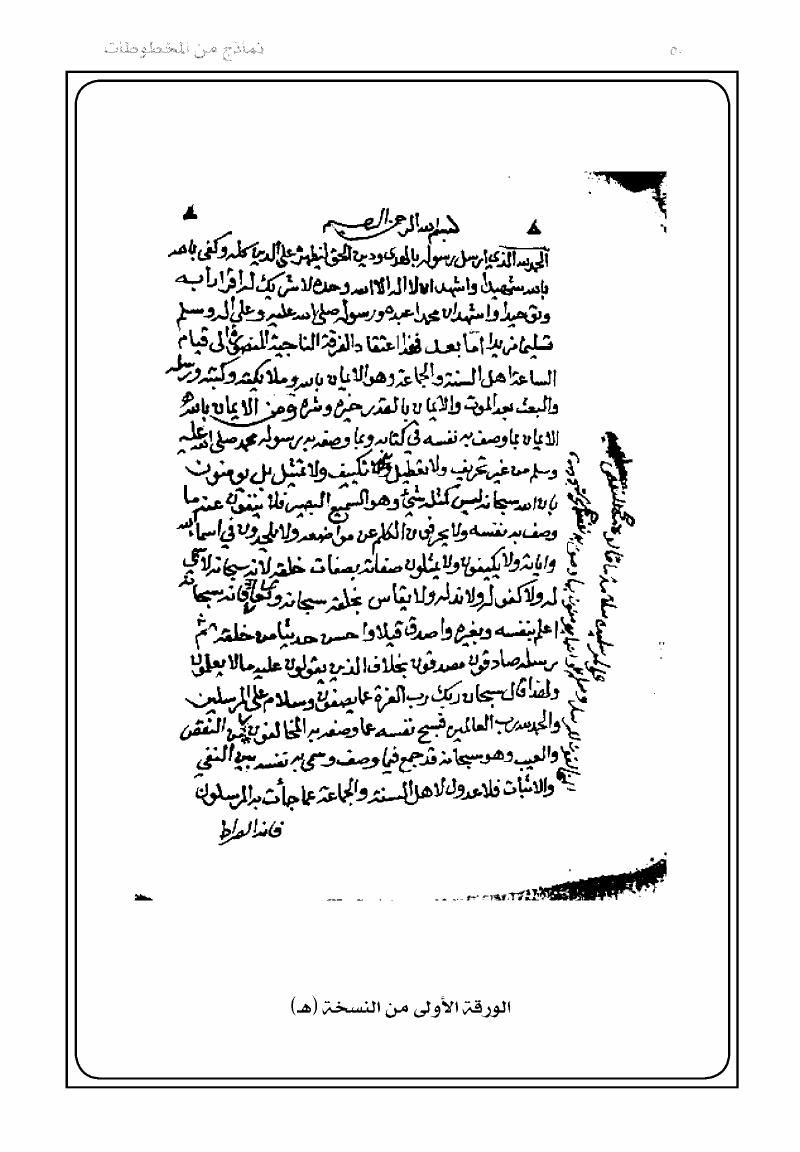 نماذج من المخطوطات
٥٠
بسم الله الرحمن الرحيم
الحمد لله الذي ارسل رسوله بالهدى ودين الحق ليظهره على الدين كله وكفى بالله
بالله شهيدا واشهد ان لا اله الا الله وحده لا شريك له اقرارا به
وتوحيدا واشهد ان محمدا عبده ورسوله صلى الله عليه وعلى اله وسلم
تسليما مزيدا اما بعد فهذا اعتقاد الفرقة الناجية المنصورة الى قيام
الساعة اهل السنة والجماعة وهو الايمان بالله وملائكته وكتبه ورسله
والبعث بعد الموت والايمان بالقدر خيره وشره ومن الايمان بالله
الايمان بما وصف به نفسه في كتابه وبما وصفه به رسوله محمد صلى الله عليه
وسلم من غير تحريف ولا تعطيل ولا تكييف ولا تمثيل بل يومنون
بان الله سبحانه ليس كمثله شئ وهو السميع البصير فلا ينفون عنه ما
وصف به نفسه ولا يحرفون الكلم عن مواضعه ولا يلحدون في اسماء الله
واياته ولا يكيفون ولا يمثلون صفاته بصفات خلقه لانه سبحانه لا سمي
له ولا كفو له ولا ند له ولا يقاس بخلقه سبحانه وتعالى فانه سبحانه
اعلم بنفسه وبغيره واصدق قيلا واحسن حديثا من خلقه ثم
رسله صادقون مصدقون بخلاف الذين يقولون عليه ما لا يعلمون
ولهذا قال سبحان ربك رب العزة عما يصفون وسلام على المرسلين
والحمد لله رب العالمين فسبح نفسه عما وصفه به المخالفون من النقص
والعيب وهو سبحانه قد جمع فيما وصف وسمى به نفسه بين النفي
والاثبات فلا عدول لاهل السنة والجماعة عما جاءت به المرسلون
فانه الصراط
الورقة الأولى من النسخة (هـ)